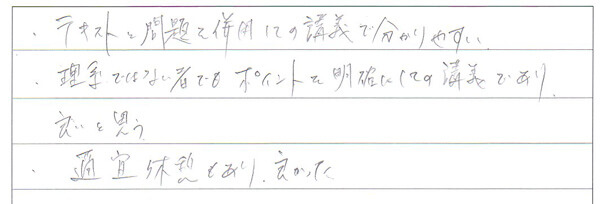 ・テキストと問題を併用しての講義で分かりやすい.
・理系ではない者でも ポイントを明確にしての講義であり
良いと思う
・適宜休憩もあり、良かった